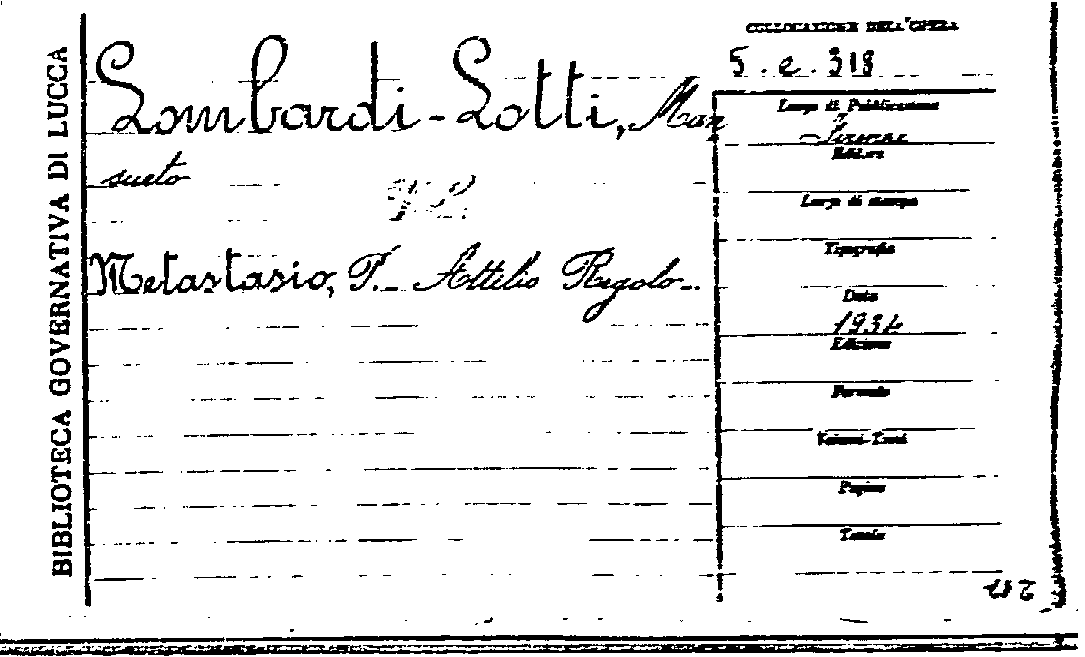 BIBLIOTECA GOVERNATIVA DI LUCCA
COLLOCAZIONE DELL'OPERA
5.e.318
Lombardi-Lotti, Man
sueto
V. L.
Metastasio, P. - Attilio Regolo -
Luogo di Pubblicazione
Firenze
Editore
Luogo di stampa
Tipografia
Data
1934
Edizione
Formato
Volumi-Tomi
Pagine
Tavole